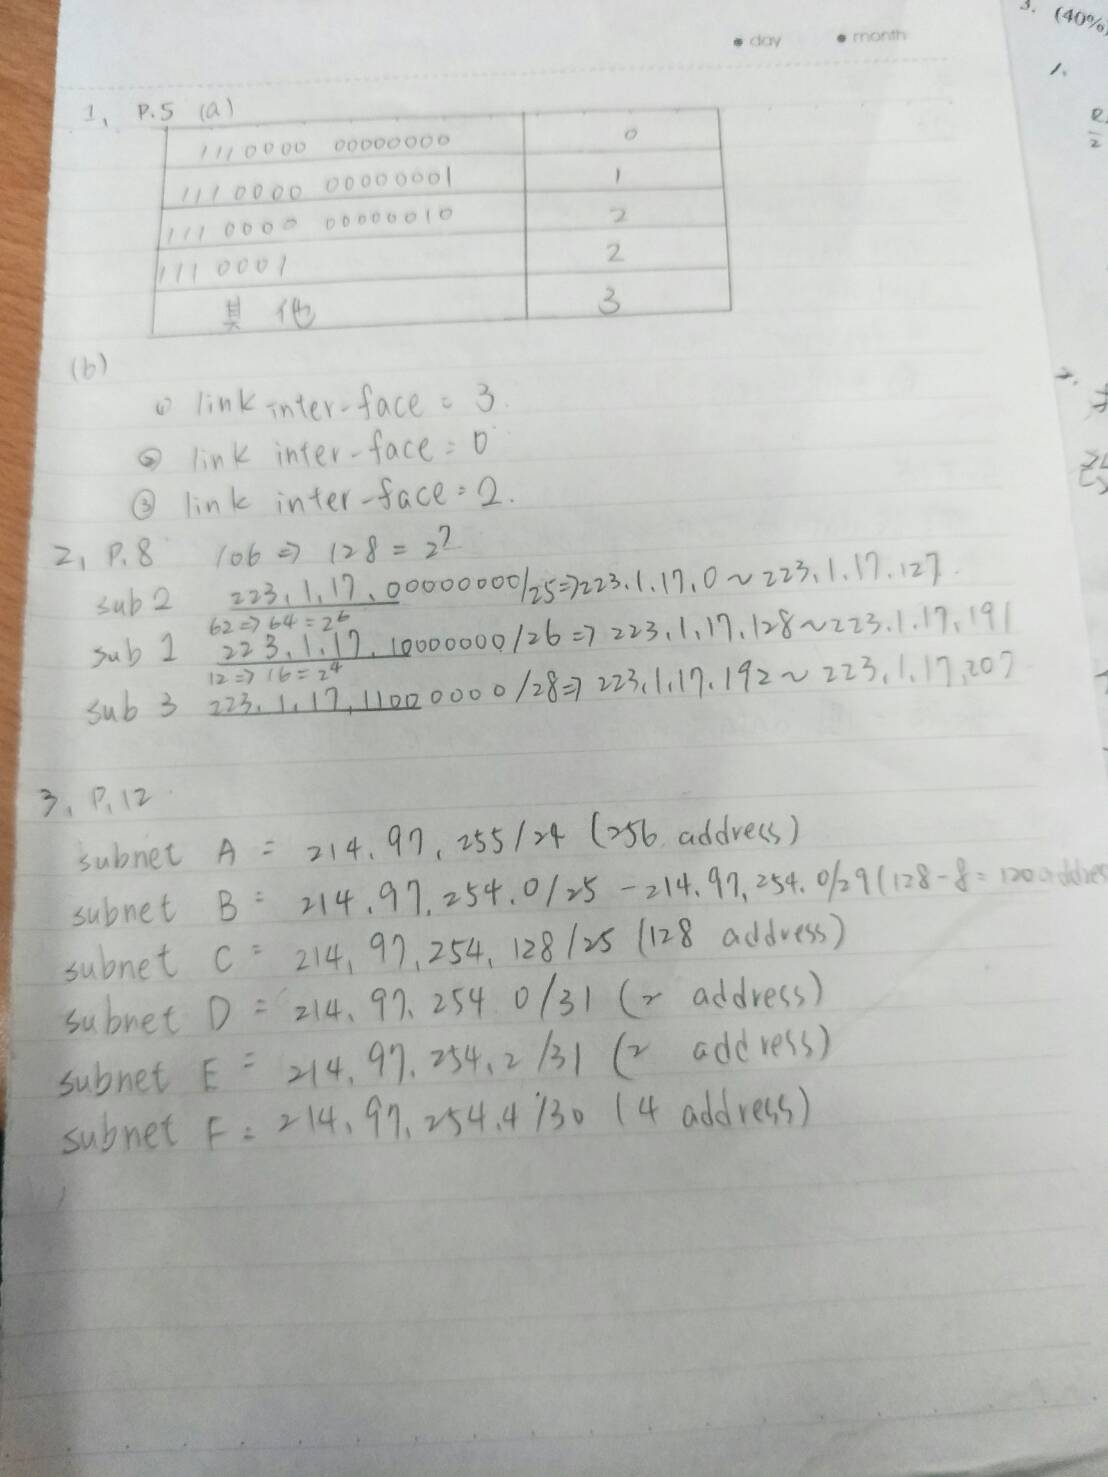 • day • month
3. (40%)
1.
1. P.5 (a)
1110000 00000000 0
1110000 00000001 1
1110000 00000010 2
1110001 2
其他 3
(b)
① link inter-face = 3.
② link inter-face = 0
③ link inter-face = 2.
2. P.8 106 => 128 = 2^7
sub 2 223.1.17.00000000/25 => 223.1.17.0 ~ 223.1.17.127.
62 => 64 = 2^6
sub 1 223.1.17.10000000/26 => 223.1.17.128 ~ 223.1.17.191
12 => 16 = 2^4
sub 3 223.1.17.11000000/28 => 223.1.17.192 ~ 223.1.17.207
3. P.12
subnet A = 214.97.255/24 (256 address)
subnet B = 214.97.254.0/25 - 214.97.254.0/29 (128-8 = 120 addres
subnet C = 214.97.254.128/25 (128 address)
subnet D = 214.97.254.0/31 (2 address)
subnet E = 214.97.254.2/31 (2 address)
subnet F = 214.97.254.4/30 (4 address)